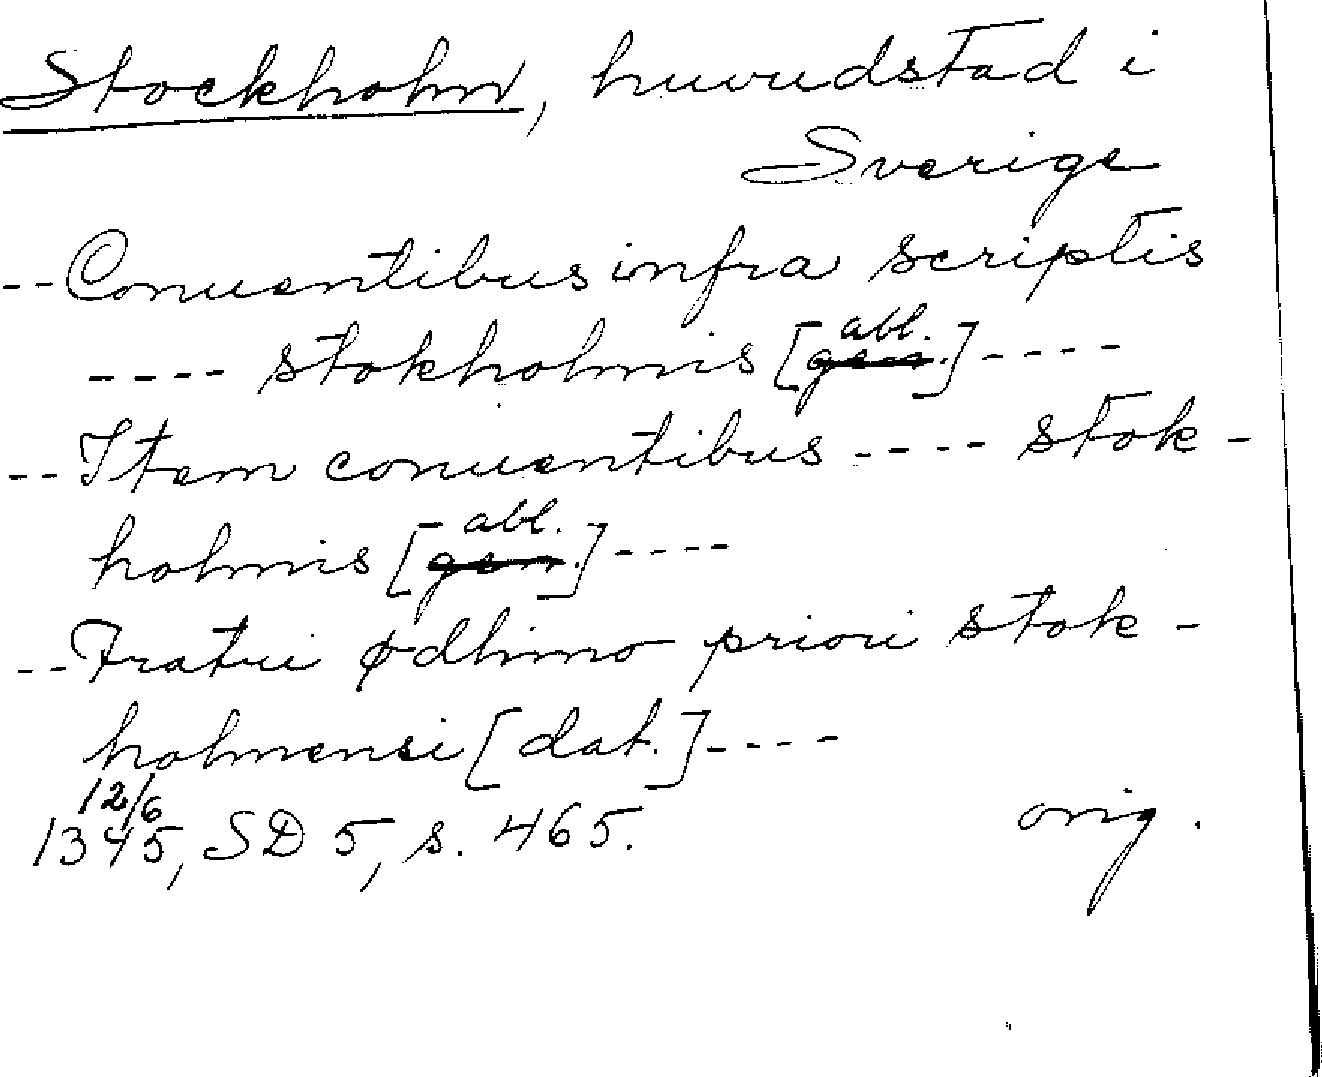 Stockholm, huvudstad i
Sverige
-- Conuentibus infra scriptis
abl.
---- stokholmis [gen.] ----
-- Item conuentibus ---- stok-
abl.
holmis [gen.] ----
-- Fratri ødhmo priori stok-
holmensi [dat.] ----
12/6
1345, SD 5, s. 465. orig.